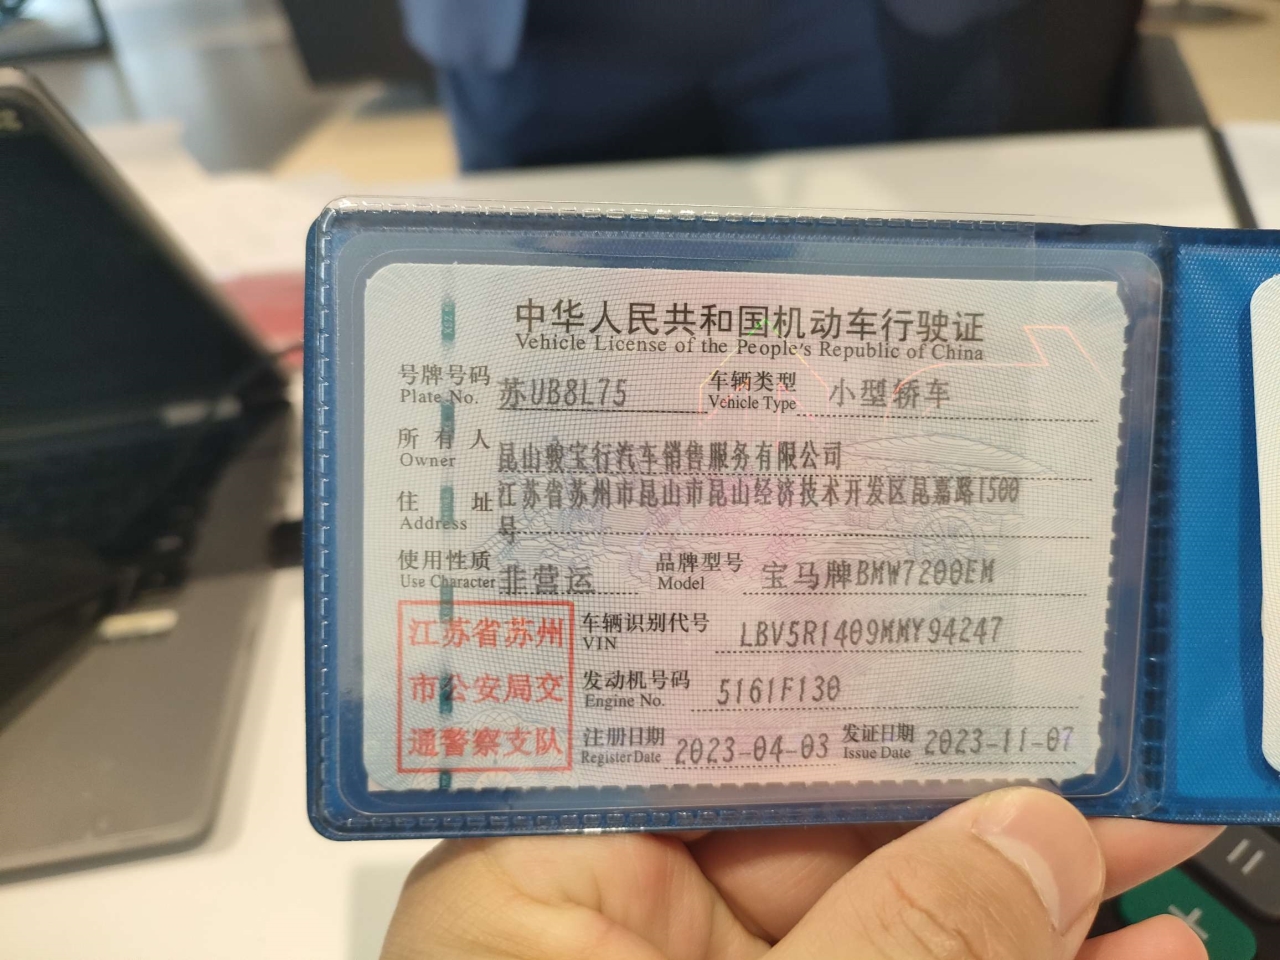 中华人民共和国机动车行驶证
Vehicle License of the People's Republic of China
号牌号码 苏UB8L75 车辆类型 小型轿车
Plate No. Vehicle Type
所有人 昆山骏宝行汽车销售服务有限公司
Owner
住址 江苏省苏州市昆山市昆山经济技术开发区昆嘉路1500
Address 号
使用性质 非营运 品牌型号 宝马牌BMW7200EM
Use Character Model
江苏省苏州
市公安局交
通警察支队
车辆识别代号 LBV5R1409MMY94247
VIN
发动机号码 5161F130
Engine No.
注册日期 2023-04-03 发证日期 2023-11-07
Register Date Issue Date